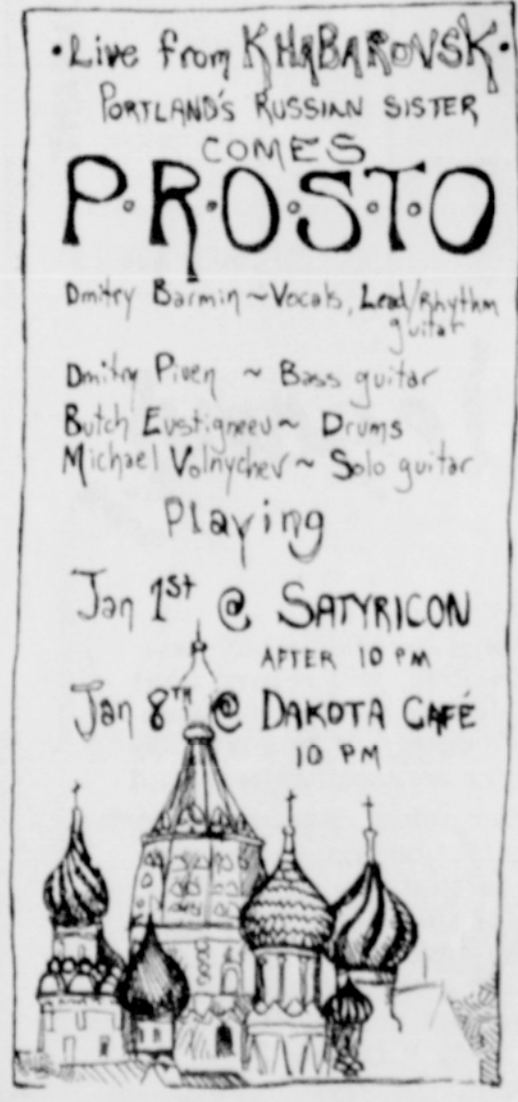 ·Live from KHABAROVSK·
PORTLAND'S RUSSIAN SISTER
COMES
P·R·O·S·T·O
Dmitry Barmin ~ Vocals, Lead/Rhythm
guitar
Dmitry Piven ~ Bass guitar
Butch Evstigneev ~ Drums
Michael Volnychev ~ Solo guitar
Playing
Jan 1st @ SATYRICON
AFTER 10 PM
Jan 8TH @ DAKOTA CAFÉ
10 PM